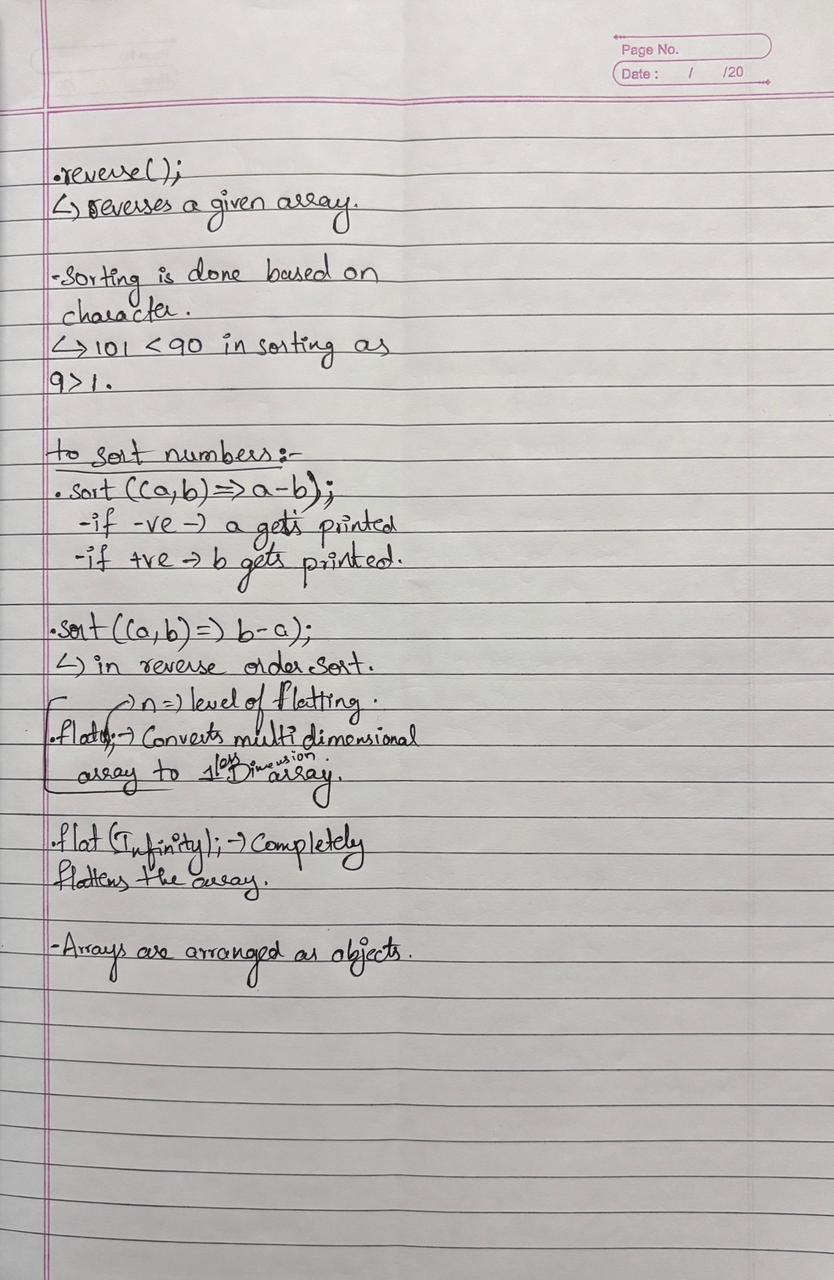 Page No.
Date : / /20
.reverse();
↳ reverses a given array.
-Sorting is done based on
character.
↳ 101 < 90 in sorting as
9>1.
to sort numbers:-
.sort((a,b)=>a-b);
-if -ve → a gets printed
-if +ve → b gets printed.
.sort((a,b)=> b-a);
↳ in reverse order sort.
→ n=> level of flatting.
.flat(); → Converts multi dimensional
array to 1 less Dimension array.
.flat(Infinity); → Completely
flattens the array.
-Arrays are arranged as objects.